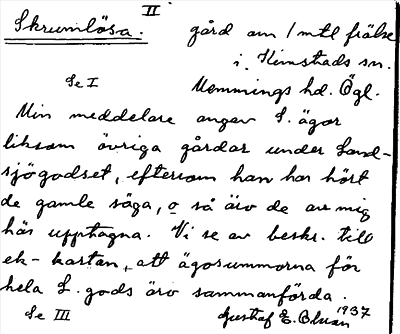 II
Skrumlösa. gård om 1 mtl frälse
i Kimstads sn.
Se I Memmings hd. Ögl.
Min meddelare angav S. ägor
liksom övriga gårdar under Land-
sjögodset, eftersom han har hört
de gamle säga, o så äro de av mig
här upptagna. Vi se av beskr. till
ek-kartan, att ägosummorna för
hela L. gods äro sammanförda.
Se III Gustaf E. 1937